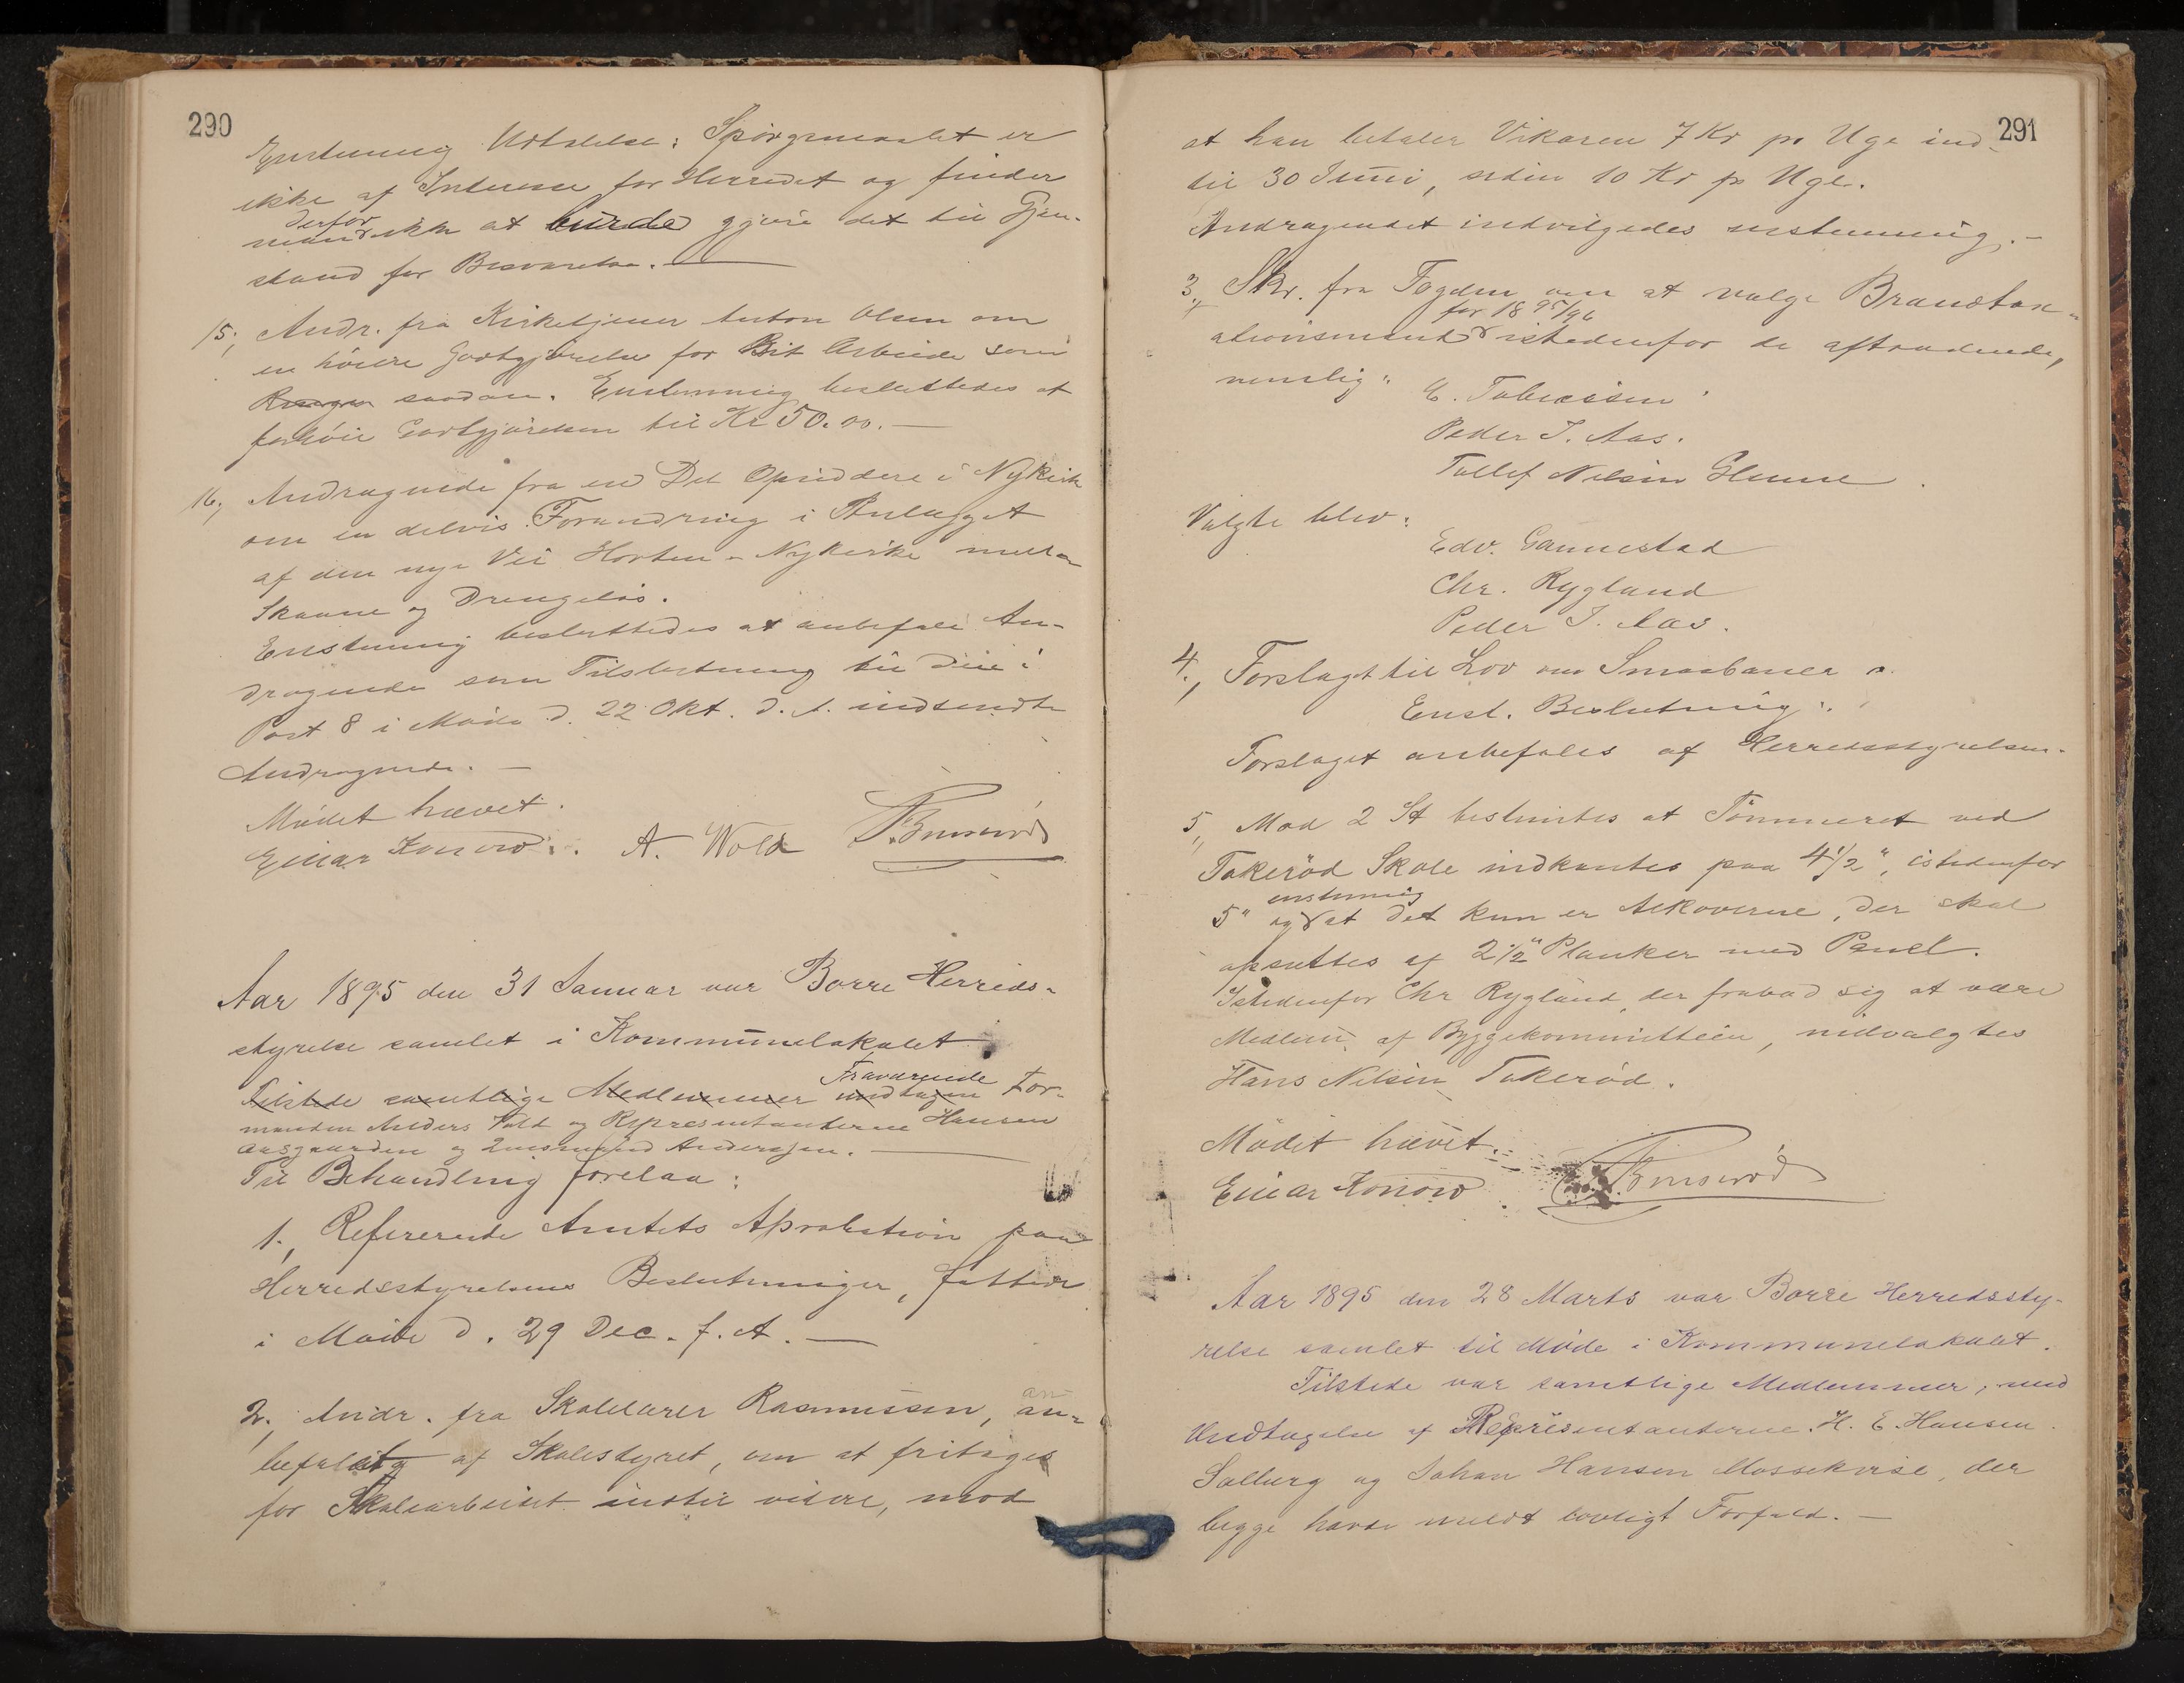 290
Enstemmig Udtalelse: Spörgsmaalet er
ikke af Interesse for Herredet og finder
derfor
man ikke at burde gjøre det til Gjen-
stand for Besvarelse. —
15, Andr. fra Kirketjener Anton Olsen om
en höiere Godtgjörelse for Sit Arbeide som
saadan. Enstemmig besluttedes at
forhöie Godtgjörelsen til Kr 50.00. —
16, Andragende fra en Del Opsiddere i Nykirke
om en delvis Forandring i Anlægget
af den nye Vei Horten - Nykirke mellem
Skaane og Drengelös.
Enstemmig besluttedes at anbefale An-
dragende som Tilslutning til det i
Post 8 i Möde d. 22 Okt. d. A. indsendte
Andragende. —
Mödet hævet.
Einar Konow. A. Wold
Aar 1895 den 31 Januar var Borre Herreds-
styrelse samlet i Kommunelokalet
Fraværende
Tilstede samtlige Medlemmer undtagen For-
manden Anders Vold og Repræsentanterne Hansen
Aasgaarden og Andersen. —
Til Behandling forelaa:
1., Refererede Amtets Aprobation paa
Herredsstyrelsens Beslutninger, fattede
i Möde d. 29 Dec. f. A. —
2., Andr. fra Skolelærer Rasmussen, an-
befalet af Skolestyret, om at fritages
for Skolearbeidet indtil videre, mod
291
at han betaler Vikaren 7 Kr pr Uge ind-
til 30 Juni, siden 10 Kr pr Uge.
Andragendet indvilgedes enstemmig. —
3., Skr. fra Fogden om at vælge Brandtax-
for 1895/96
ationsmænd istedenfor de aftrædende,
nemlig: E. Tobiassen
Peder J. Aas.
Tollef Nilsen
Valgte blev:
Edv. Gannestad
Chr. Rygland
Peder J. Aas.
4., Forslaget til Lov om Smaabaner
Enst. Beslutning:
Forslaget anbefales af Herredsstyrelsen.
5., Mod 2 St bestemtes at Tömmeret ved
Takeröd Skole indkantes paa 4 1/2", istedenfor
enstemmig
5" og at det kun er Alkoverne, der skal
opsettes af 2 1/2" Planker med Panel.
Istedenfor Chr Rygland, der frabad sig at være
Medlem af Byggekommitteen, nidvalgtes
Hans Nilsen Takeröd.
Mödet hævet.
Einar Konow
Aar 1895 den 28 Marts var Borre Herredssty-
relse samlet til Möde i Kommunelokalet.
Tilstede var samtlige Medlemmer, med
Undtagelse af Repræsentanterne H. E. Hansen
Solberg og Johan Hansen, der
begge havde meldt lovligt Forfald. —